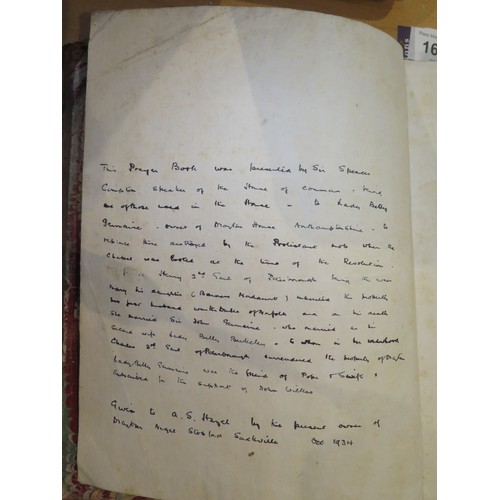 This Prayer Book was presented by Sir Spencer
Compton Speaker of the House of Commons, being
one of those used in the House - to Lady Betty
Germaine - owner of Drayton House Northamptonshire, to
replace those destroyed by the Protestant mob when the
Chapel was looted at the time of the Revolution.
Henry 2nd Earl of Peterborough being the owner
Mary his daughter (Baroness Mordaunt) inherited the property
her first husband was the Duke of Norfolk and on his death
She married Sir John Germaine, who married as his
second wife Lady Betty Berkeley, to whom in her widowhood
Charles 3rd Earl of Peterborough surrendered the property of Drayton
Lady Betty Germaine was the friend of Pope & Swift,
Subscribed to the support of John Wilkes
Given to A. S. by the present owner of
Drayton Stopford Sackville Oct 1934
16